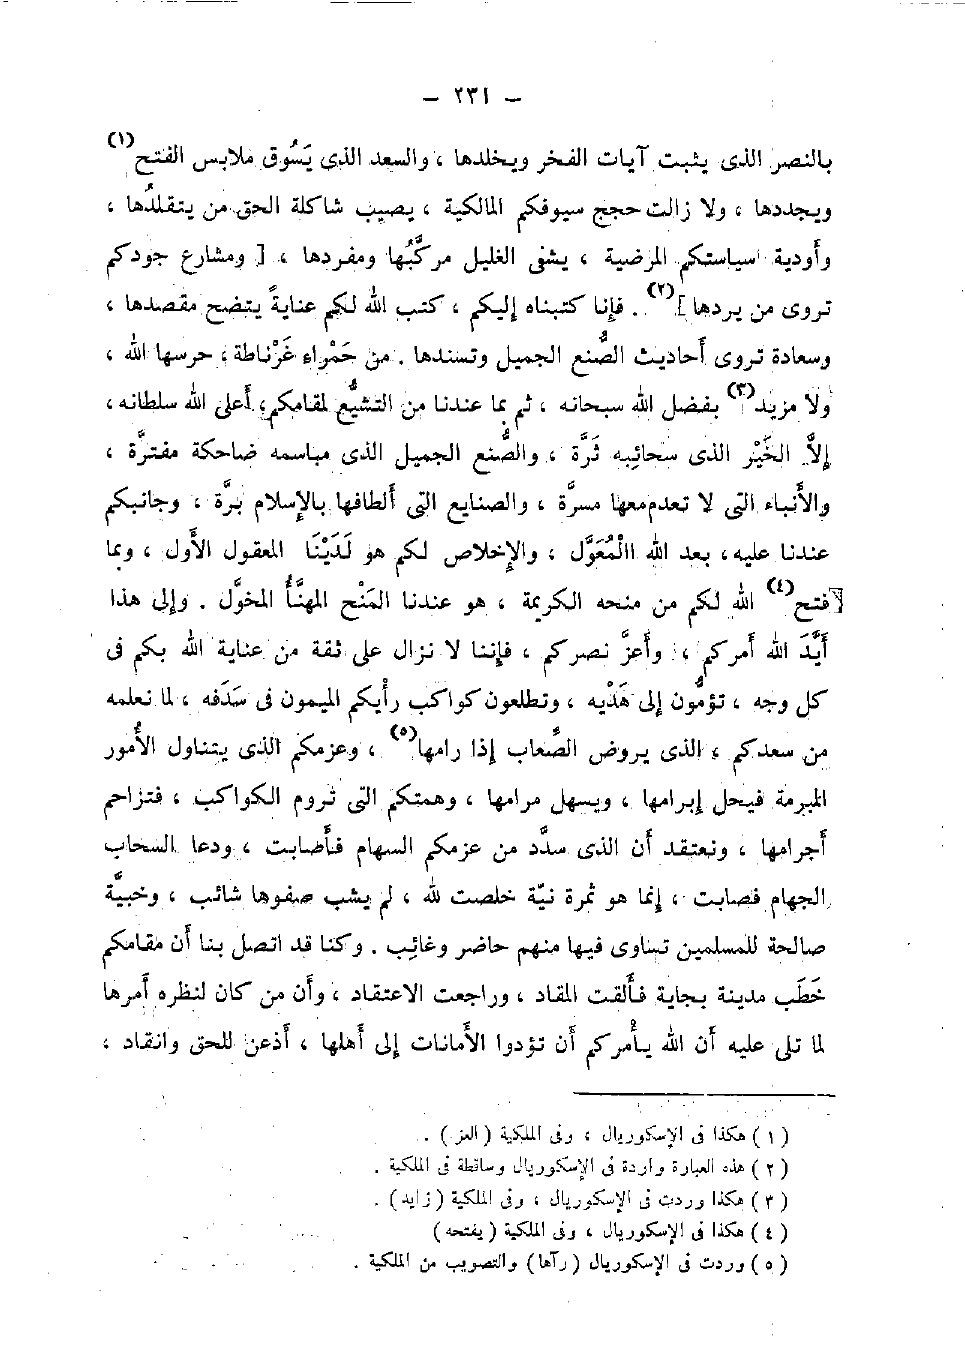 — ٢٣١ —
بالنصر الذى يثبت آيات الفخر ويخلدها ، والسعد الذى يَسُوق ملابس الفتح (١)
ويجددها ، ولا زالت حجج سيوفكم المالكية ، يصيب شاكلة الحق من يتقلدُها ،
وأودية سياستكم المرضية ، يشفى الغليل مركَّبُها ومفردها ، [ ومشارع جودكم
تروى من يردها ] (٢) . فإنا كتبناه إليكم ، كتب الله لكم عنايةً يتضح مقصدها ،
وسعادة تروى أحاديث الصُّنع الجميل وتسندها . من حَمْراء غَرْناطة ، حرسها الله ،
ولا مزيد (٣) بفضل الله سبحانه ، ثم بما عندنا من التشيُّع لمقامكم ، أعلى الله سلطانه ،
إلاَّ الخَيْر الذى سحائبه ثَرَّة ، والصُّنع الجميل الذى مباسمه ضاحكة مفترَّة ،
والأنباء التى لا تعدم معها مسرَّة ، والصنايع التى ألطافها بالإسلام برَّة ، وجانبكم
عندنا عليه ، بعد الله االْمُعَوَّل ، والإخلاص لكم هو لَدَيْنَا المعقول الأَول ، وبما
فتح (٤) الله لكم من منحه الكريمة ، هو عندنا المَنْح المهنَّأُ المخوَّل . وإلى هذا
أَيَّدَ الله أمركم ، وأعزَّ نصركم ، فإننا لا نزال على ثقة من عناية الله بكم فى
كل وجه ، تؤمُّون إلى هَدْيِه ، وتطلعون كواكب رأْيكم الميمون فى سَدَفه ، لما نعلمه
من سعدكم ، الذى يروض الصِّعاب إذا رامها (٥) ، وعزمكم الذى يتناول الأُمور
المبرمة فيحل إبرامها ، ويسهل مرامها ، وهمتكم التى تروم الكواكب ، فتزاحم
أجرامها ، ونعتقد أن الذى سدَّد من عزمكم السهام فأَصابت ، ودعا السحاب
الجهام فصابت ، إنما هو ثمرة نيّة خلصت لله ، لم يشب صفوها شائب ، وخبيَّة
صالحة للمسلمين تساوى فيها منهم حاضر وغائب . وكنا قد اتصل بنا أن مقامكم
خَطَب مدينة بجاية فأَلقت المقاد ، وراجعت الاعتقاد ، وأن من كان لنظره أمرها
لما تلى عليه أن الله يأْمركم أن تؤدوا الأَمانات إلى أهلها ، أذعن للحق وانقاد ،
(١) هكذا فى الإسكوريال ، وفى الملكية (العز) .
(٢) هذه العبارة واردة فى الإسكوريال وساقطة فى الملكية .
(٣) هكذا وردت فى الإسكوريال ، وفى الملكية (زايد) .
(٤) هكذا فى الإسكوريال ، وفى الملكية (يفتحه)
(٥) وردت فى الإسكوريال (رآها) والتصويب من الملكية .